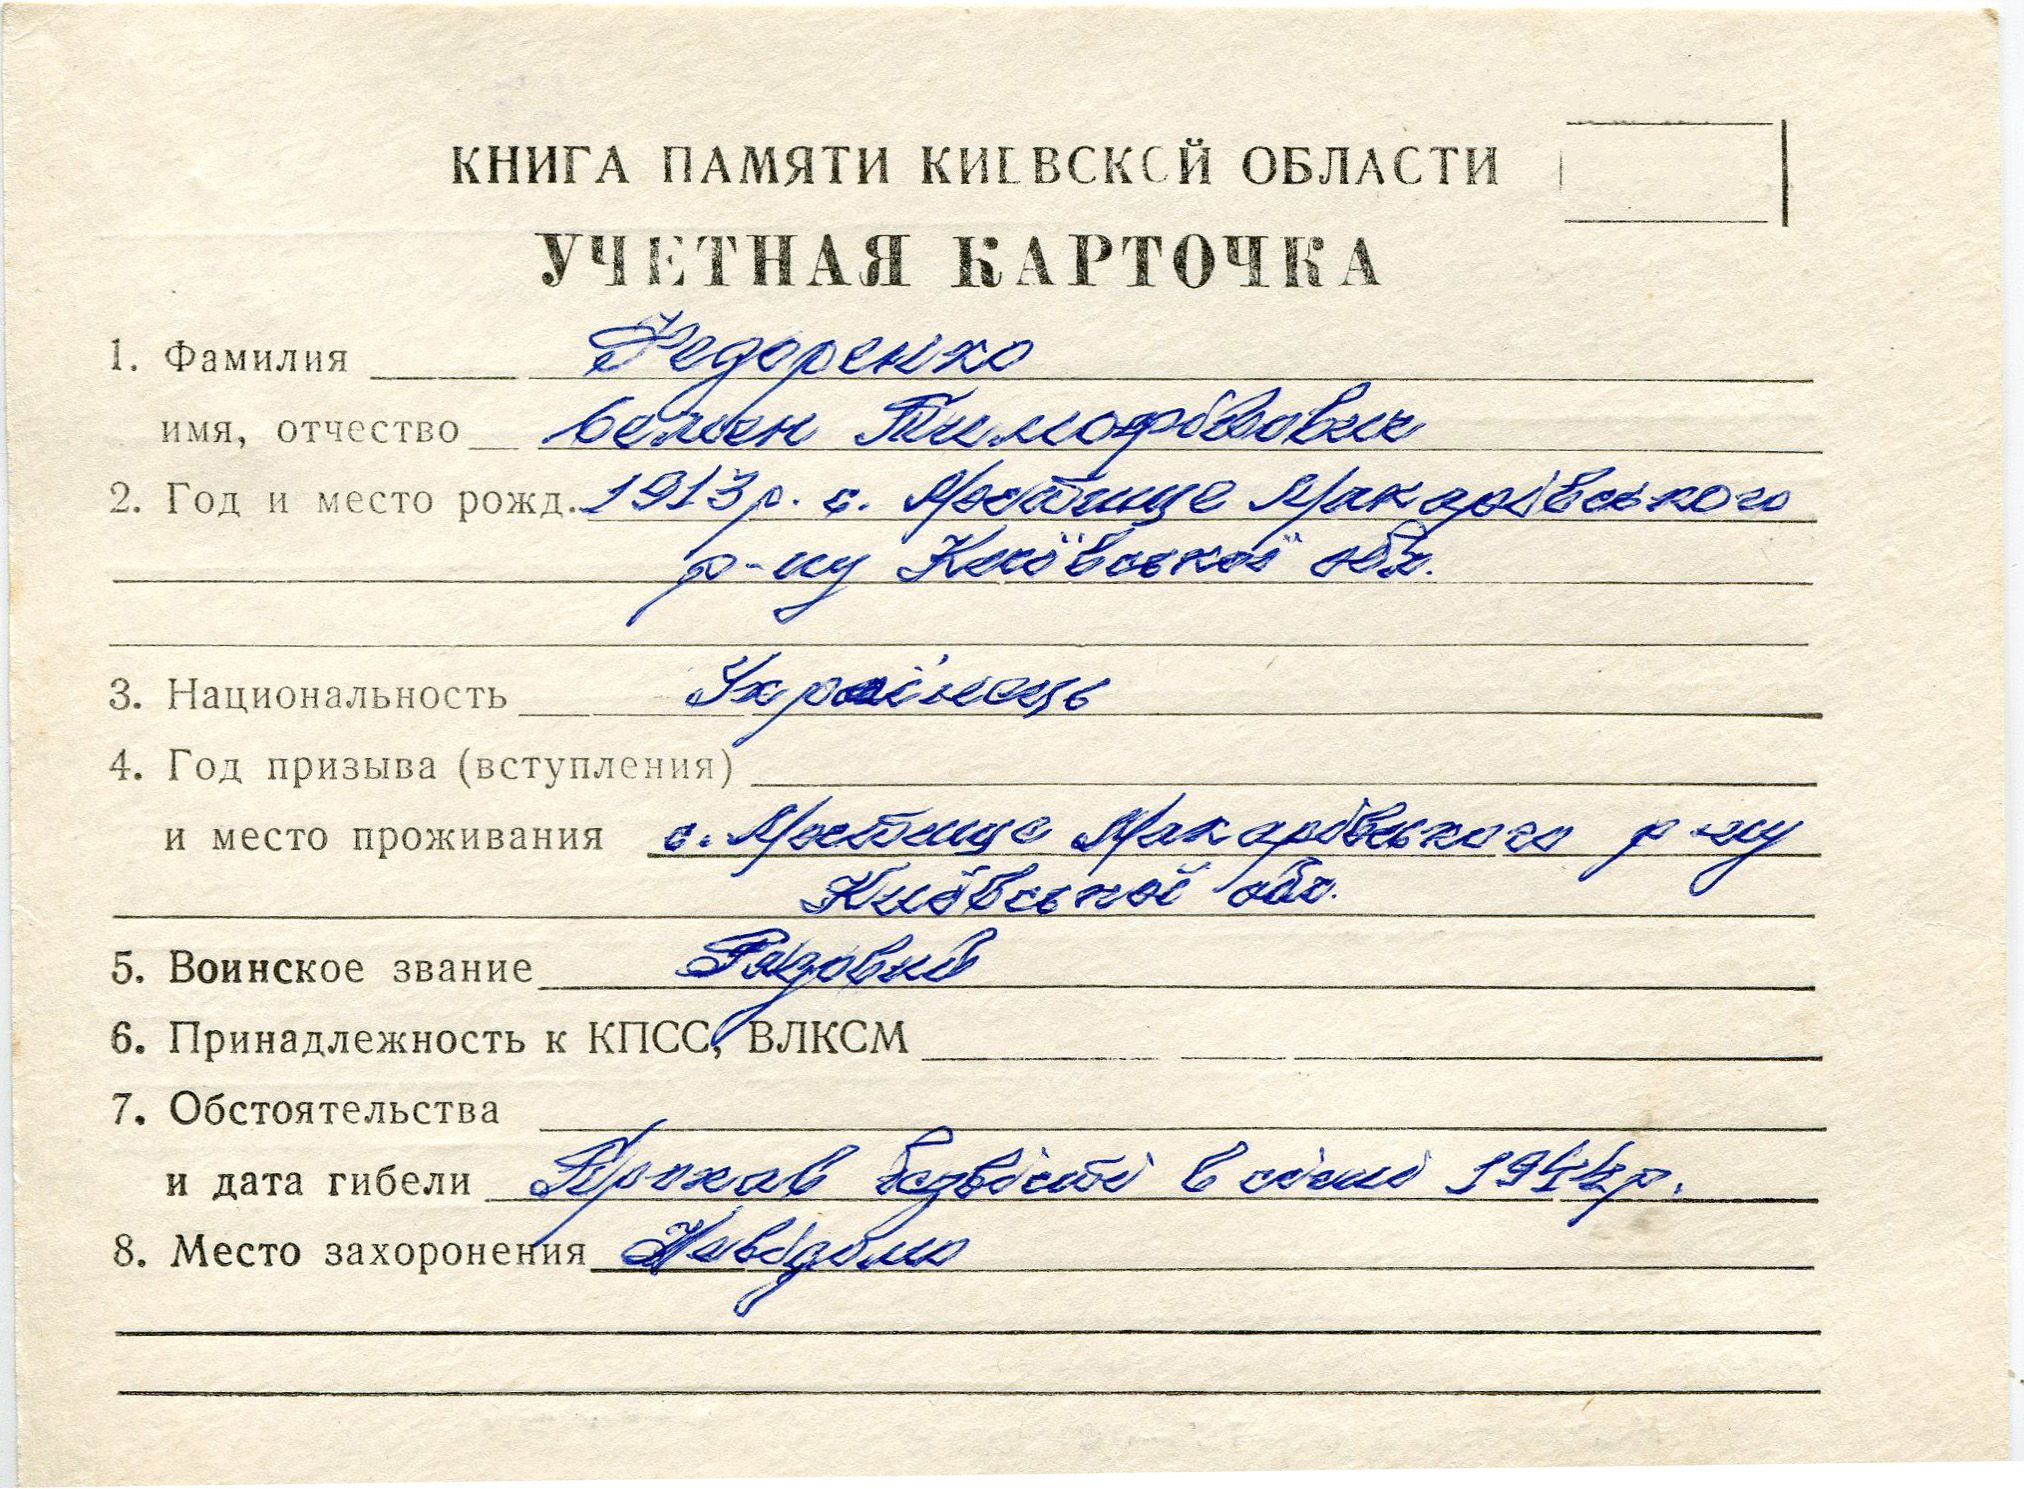 КНИГА ПАМЯТИ КИЕВСКОЙ ОБЛАСТИ
УЧЕТНАЯ КАРТОЧКА
1. Фамилия Федоренко
имя, отчество Семен Тимофійович
2. Год и место рожд. 1913р. с. Мостище Макарівського
р-ну Київської обл.
3. Национальность Українець
4. Год призыва (вступления)
и место проживания с. Мостище Макарівського р-ну
Київської обл.
5. Воинское звание Рядовий
6. Принадлежность к КПСС, ВЛКСМ
7. Обстоятельства
и дата гибели Пропав безвісті в січні 1944р.
8. Место захоронения Невідомо